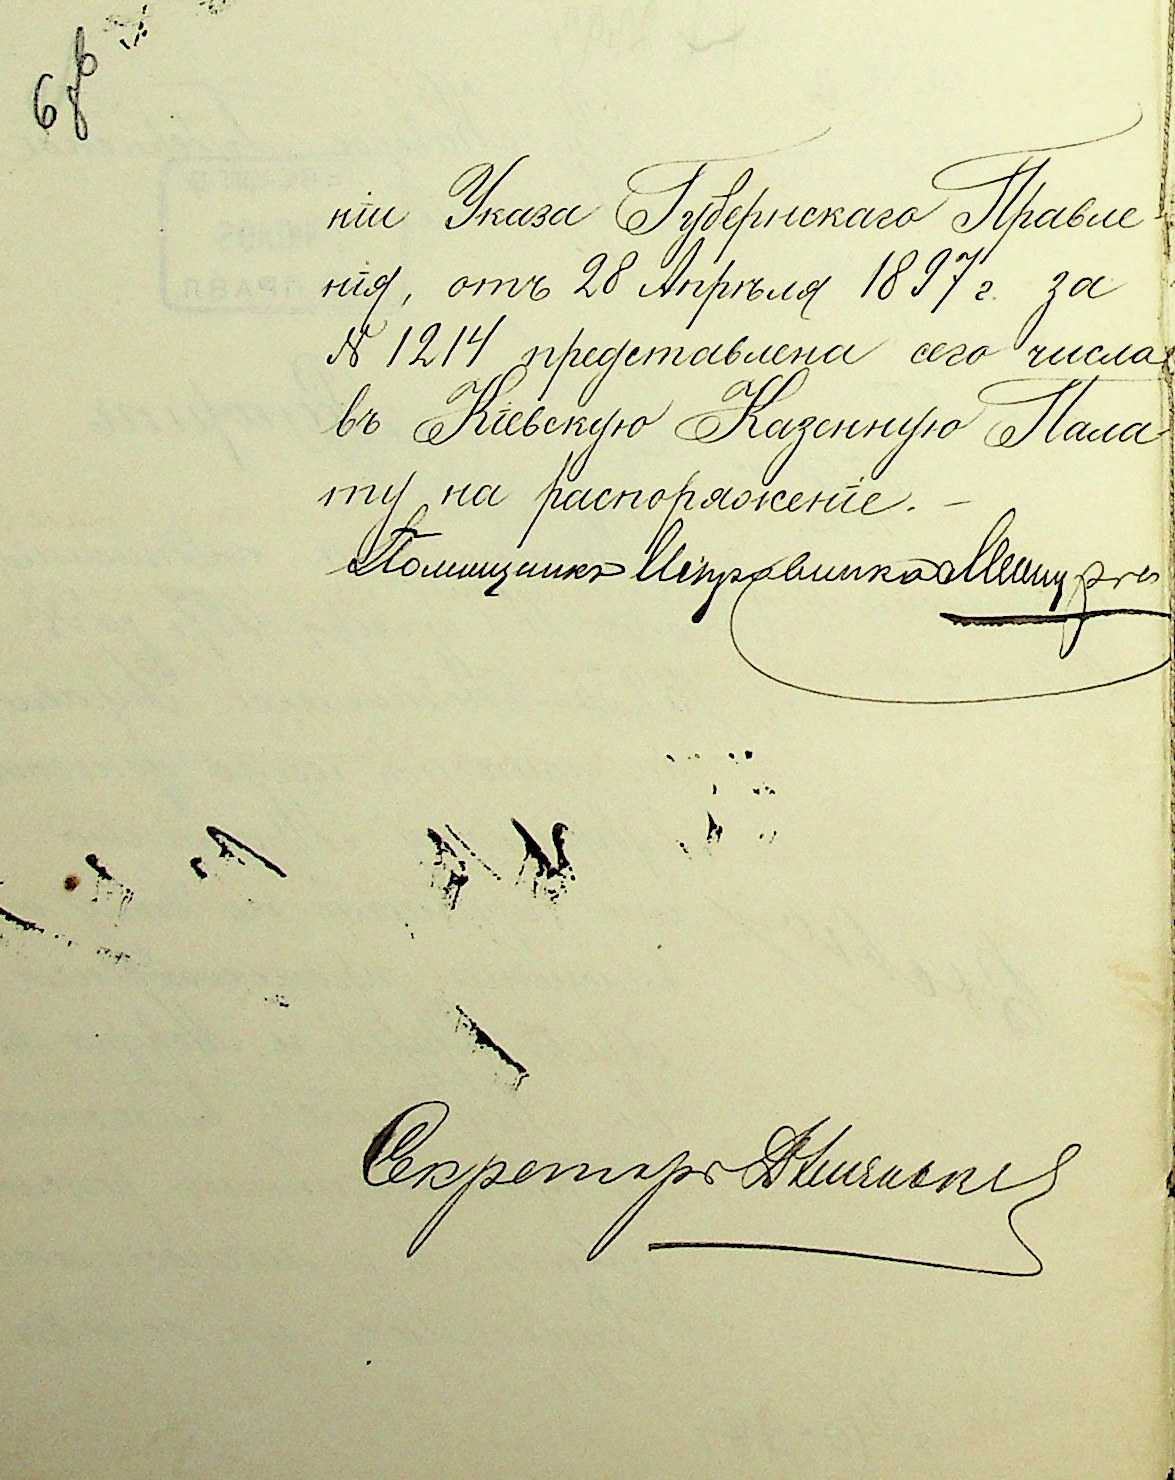 6 об
нiи Указа Губернскаго Правле-
нiя, отъ 28 Апрѣля 1897 г. за
№ 1214 представлена сего числа
въ Кiевскую Казенную Пала-
ту на распоряженiе. –
Помощникъ Исправника
Секретарь